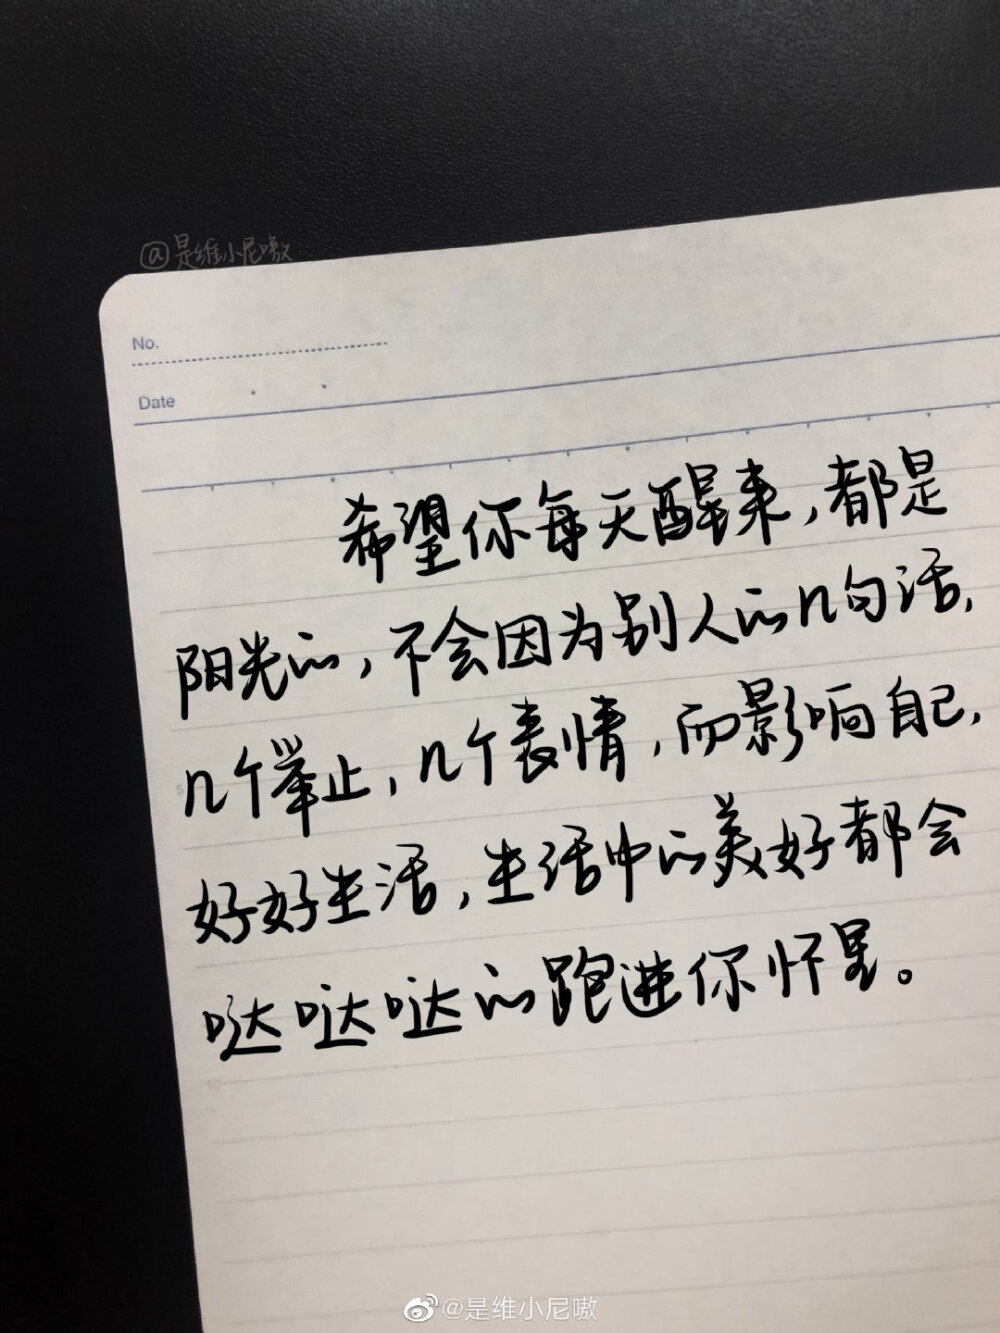 @是维小尼嗷
No.
Date
希望你每天醒来,都是
阳光的,不会因为别人的几句话,
几个举止,几个表情,而影响自己,
好好生活,生活中的美好都会
哒哒哒的跑进你怀里。
5
10
@是维小尼嗷